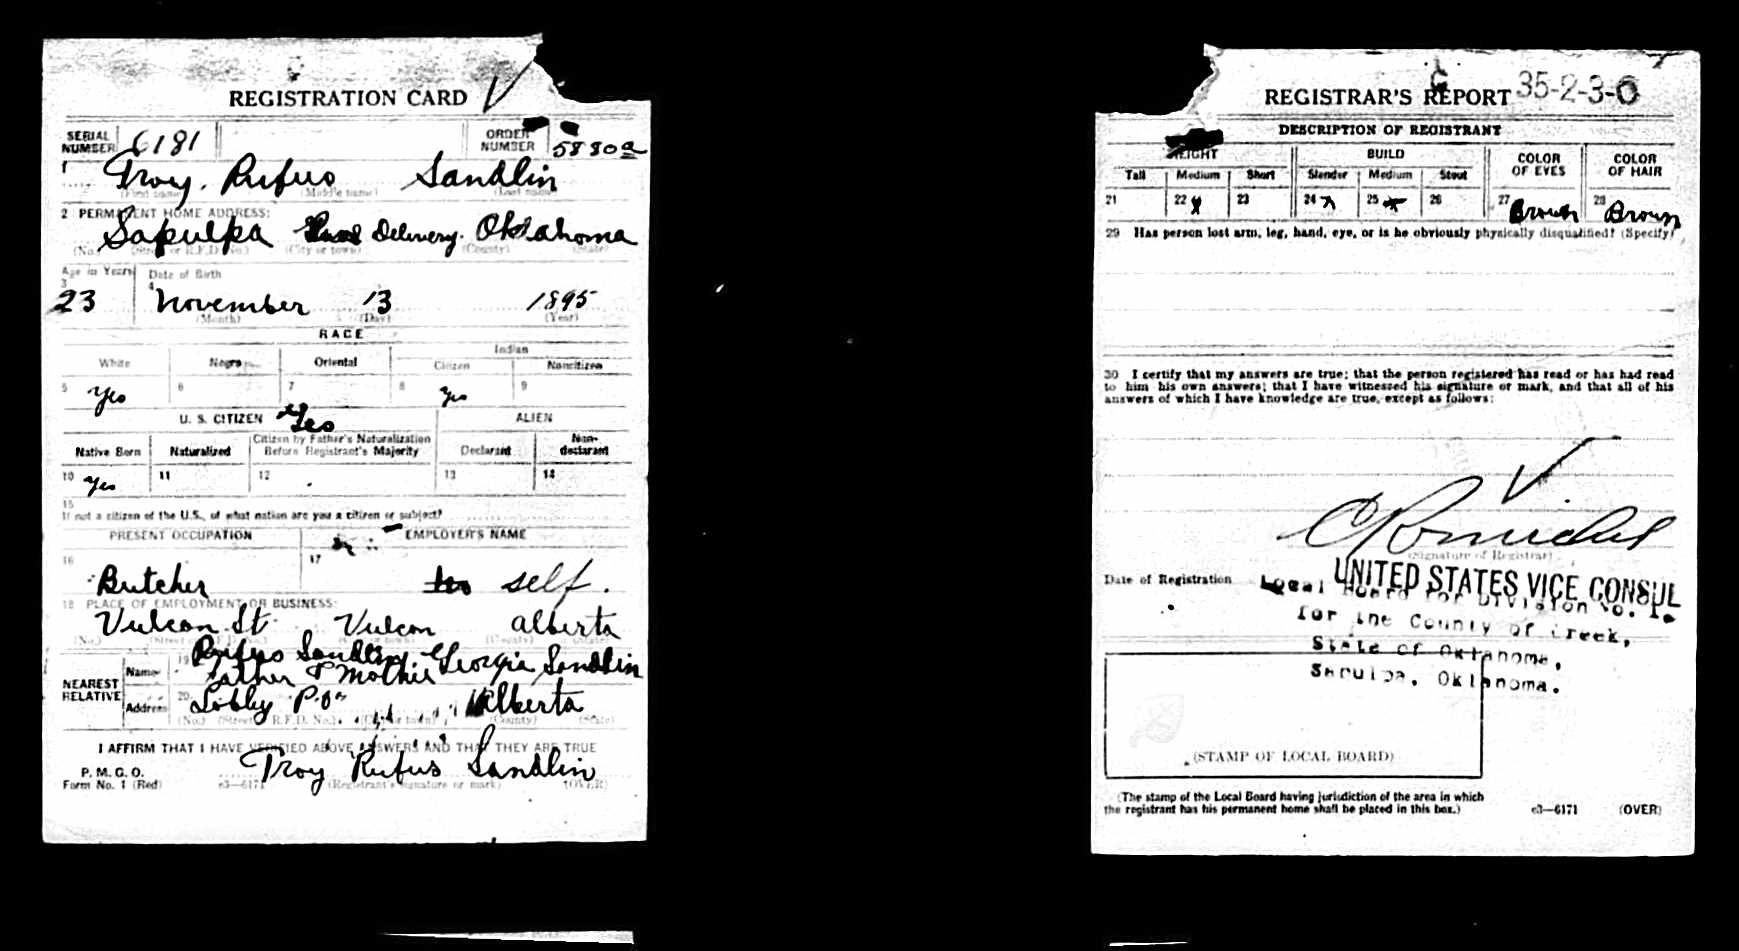 REGISTRATION CARD
SERIAL NUMBER 6181 ORDER NUMBER 5880a
1 Troy. Rufus Sandlin
(First name) (Middle name) (Last name)
2 PERMANENT HOME ADDRESS:
Sapulpa Delivery. Oklahoma
(No.) (Street or R.F.D. No.) (City or town) (County) (State)
Age in Years Date of Birth
3 23 4 November 13 1895
(Month) (Day) (Year)
RACE
White Negro Oriental Indian
Citizen Noncitizen
5 yes 6 7 8 yes 9
U. S. CITIZEN Yes ALIEN
Native Born Naturalized Citizen by Father's Naturalization Before Registrant's Majority Declarant Non-declarant
10 yes 11 12 13 14
15 If not a citizen of the U.S., of what nation are you a citizen or subject?
PRESENT OCCUPATION EMPLOYER'S NAME
16 Butcher 17 self.
18 PLACE OF EMPLOYMENT OR BUSINESS:
Vulcan St Vulcan alberta
(No.) (Street or R.F.D. No.) (City or town) (County) (State)
NEAREST RELATIVE Name 19 Rufus Sandlin Georgia Sandlin
Father & Mother
Address 20 Lobby P.O. Alberta
(No.) (Street or R.F.D. No.) (City or town) (County) (State)
I AFFIRM THAT I HAVE VERIFIED ABOVE ANSWERS AND THAT THEY ARE TRUE
P. M. G. O.
Form No. 1 (Red) c3—6171 Troy Rufus Sandlin
(Registrant's signature or mark) (OVER)
REGISTRAR'S REPORT 35-2-3-C
DESCRIPTION OF REGISTRANT
HEIGHT BUILD COLOR OF EYES COLOR OF HAIR
Tall Medium Short Slender Medium Stout
21 22 x 23 24 25 26 27 Brown 28 Brown
29 Has person lost arm, leg, hand, eye, or is he obviously physically disqualified? (Specify)
30 I certify that my answers are true; that the person registered has read or has had read
to him his own answers; that I have witnessed his signature or mark, and that all of his
answers of which I have knowledge are true, except as follows:
(Signature of Registrar)
Date of Registration UNITED STATES VICE CONSUL
Local Board for Division No. 1.
for the County of Creek,
State of Oklahoma,
Sapulpa, Oklahoma.
(STAMP OF LOCAL BOARD)
(The stamp of the Local Board having jurisdiction of the area in which
the registrant has his permanent home shall be placed in this box.) c3—6171 (OVER)